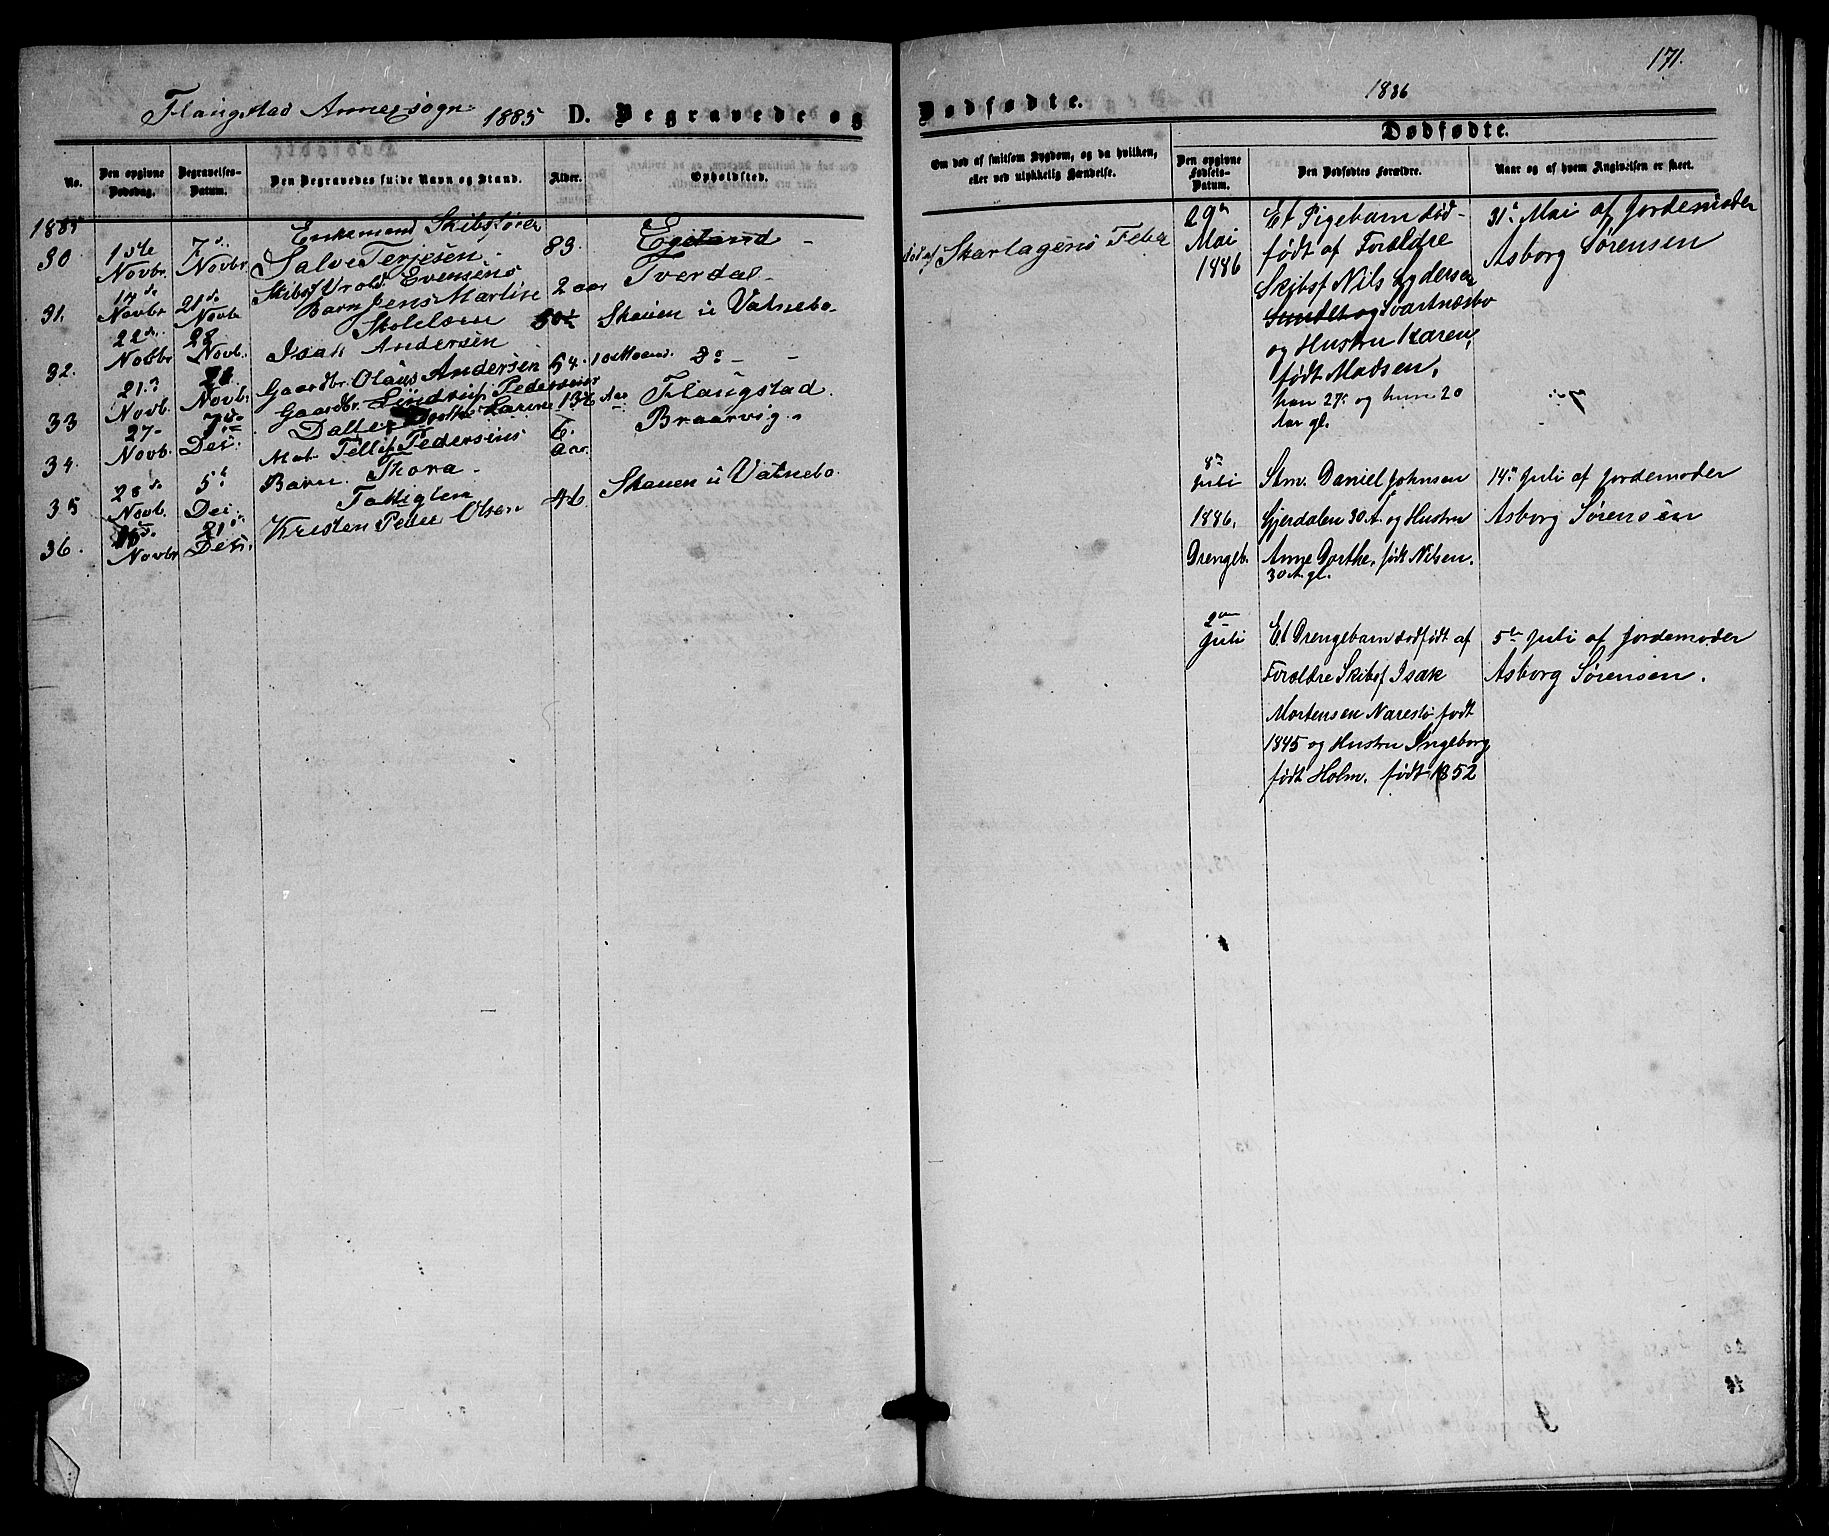 Flangstad Annexsogn 1885 D. Begravede og
No.
Den opgivne Dødsdag.
Begravelses-Datum.
Den Begravedes fulde Navn og Stand.
Alder.
Opholdsted.
1885
Enkemand Skibsfører
30 1ste Novbr. 7de Novbr Salve Terjesen. 83. Egeland
Skibsf. Evensens Tverdal
31. Novbr 21de Novb. Barn Jens Martin 2 aar
Skolelærer
32. 22de Novbr 28 Novb. Isak Andersen Skauen i Vatnebo
Gaardbr. Olaus Andersen 54. 10 Maaned. Do
33 21de Novb. 28 Novbr. Gaardbr. Pedersens Flangstad
34. 27 Novb. Dec. Datter Dorthe Karine 13½ Aar Braarvig.
Mat. Tellef Pedersens 6 aar.
35 28de Novb. 5te Dec. Barn Thora
Fattiglem Skauen i Vatnebo
36. Novbr Dec. Kristen Peder Olsen 46
171.
Dødfødte. 1886
Om død af smitsom Sygdom, og da hvilken, eller ved ulykkelig Hændelse.
Dødfødte.
Den opgivne Fødsels-Datum.
Den Dødfødtes Forældre.
Naar og af hvem Angivelsen er skeet.
død af Skarlagens Feber
29de Mai 1886
Et Pigebarn død-
født af Forældre
Skibsf Nils Lydersen
og Svartnæsbo
og Hustru Karen,
født Madsen,
han 27 og hun 20
Aar gl.
31te Mai af Jordemoder
Asborg Sørensen
8de Juli 1886. Drengeb.
Stm. Daniel Johnsen
Gjerdalen 30 A. og Hustru
Anne Dorthe, født Nilsen.
30 A. gl.
14de Juli af Jordemoder
Asborg Sørensen
2den Juli
Et Drengebarn dødfødt af
Forældre Skibsf Isak
Mortensen Narestø født
1845 og Hustru Ingeborg
født Holm. født 1852
5te Juli af Jordemoder
Asborg Sørensen.